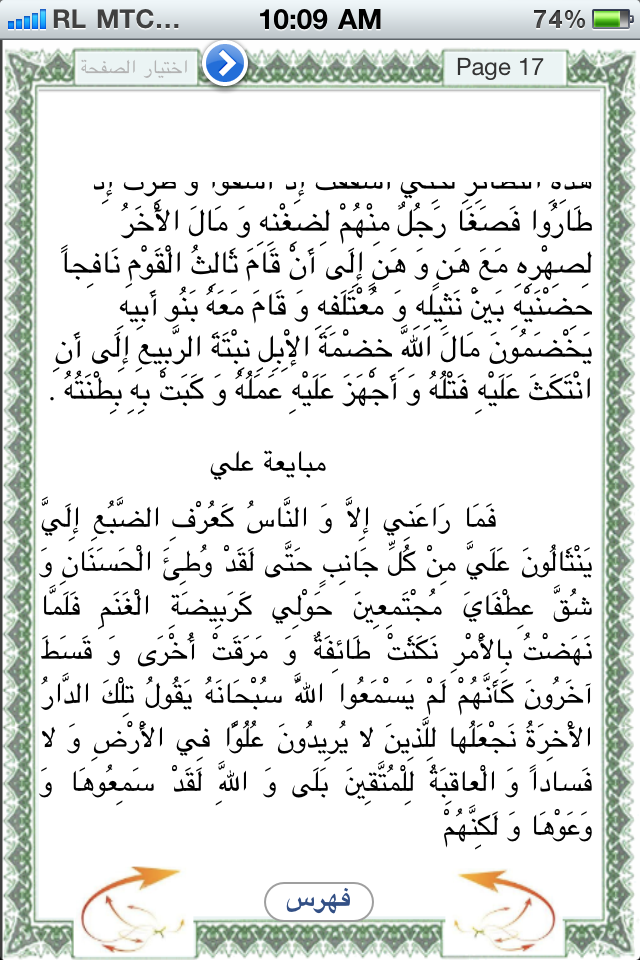 RL MTC... 10:09 AM 74%
اختيار الصفحة Page 17
هذه النظائر لكني أسففت إذ أسفوا و طرت إذ
طَارُوا فَصَغَا رَجُلٌ مِنْهُمْ لِضِغْنِهِ وَ مَالَ الْآخَرُ
لِصِهْرِهِ مَعَ هَنٍ وَ هَنٍ إِلَى أَنْ قَامَ ثَالِثُ الْقَوْمِ نَافِجاً
حِضْنَيْهِ بَيْنَ نَثِيلِهِ وَ مُعْتَلَفِهِ وَ قَامَ مَعَهُ بَنُو أَبِيهِ
يَخْضَمُونَ مَالَ اللَّهِ خِضْمَةَ الْإِبِلِ نِبْتَةَ الرَّبِيعِ إِلَى أَنِ
انْتَكَثَ عَلَيْهِ فَتْلُهُ وَ أَجْهَزَ عَلَيْهِ عَمَلُهُ وَ كَبَتْ بِهِ بِطْنَتُهُ .
مبايعة علي
فَمَا رَاعَنِي إِلَّا وَ النَّاسُ كَعُرْفِ الضَّبُعِ إِلَيَّ
يَنْثَالُونَ عَلَيَّ مِنْ كُلِّ جَانِبٍ حَتَّى لَقَدْ وُطِئَ الْحَسَنَانِ وَ
شُقَّ عِطْفَايَ مُجْتَمِعِينَ حَوْلِي كَرَبِيضَةِ الْغَنَمِ فَلَمَّا
نَهَضْتُ بِالْأَمْرِ نَكَثَتْ طَائِفَةٌ وَ مَرَقَتْ أُخْرَى وَ قَسَطَ
آخَرُونَ كَأَنَّهُمْ لَمْ يَسْمَعُوا اللَّهَ سُبْحَانَهُ يَقُولُ تِلْكَ الدَّارُ
الْآخِرَةُ نَجْعَلُها لِلَّذِينَ لا يُرِيدُونَ عُلُوًّا فِي الْأَرْضِ وَ لا
فَساداً وَ الْعاقِبَةُ لِلْمُتَّقِينَ بَلَى وَ اللَّهِ لَقَدْ سَمِعُوهَا وَ
وَعَوْهَا وَ لَكِنَّهُمْ
فهرس